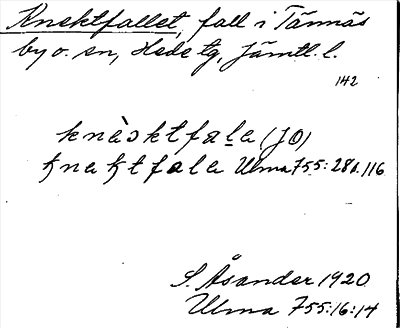 Knektfallet, fall i Tännäs
by o. sn, Hede tg, Jämtl. l.
142
knäsktfala (JO)
Ulma 755:28b.116
S. Åsander 1920
Ulma 755:16:14